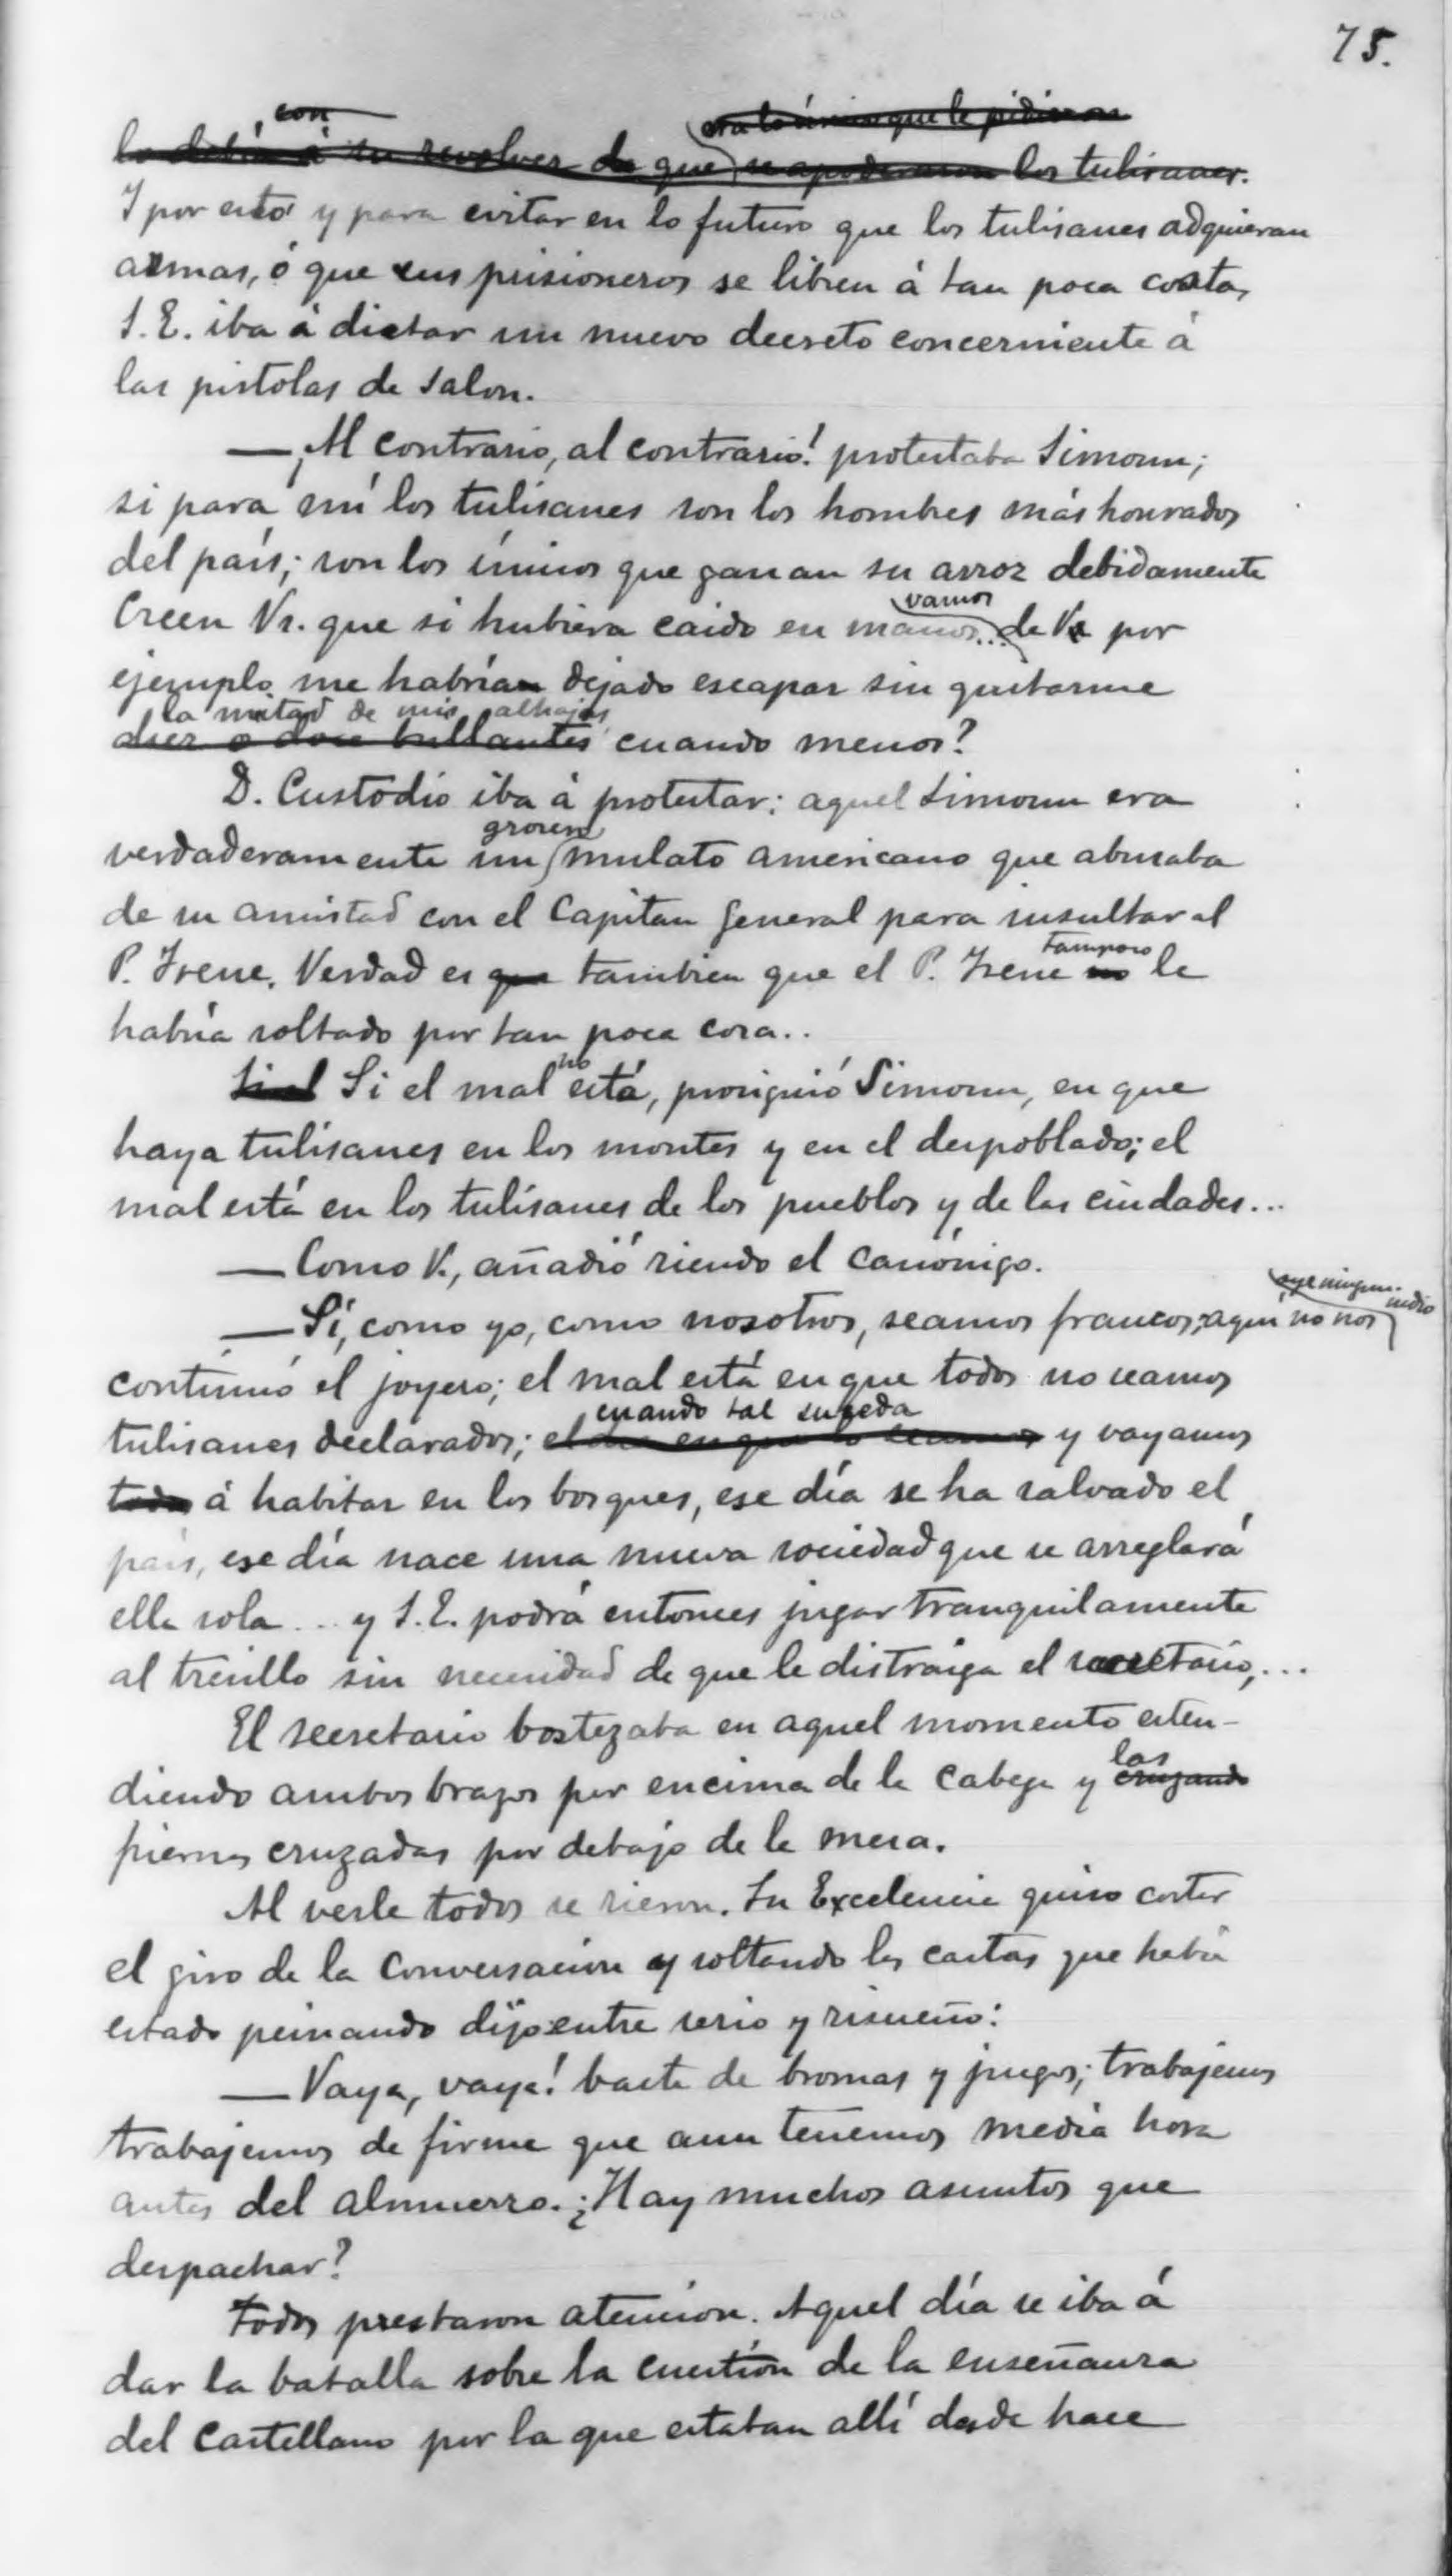 75.
con
era lo único que le pidieron
lo debía á su revolver de que se apoderaron los tulisanes.
Y por esto y para evitar en lo futuro que los tulisanes adquieran
armas, ó que sus prisioneros se libren á tan poca costa,
S. E. iba á dictar un nuevo decreto concerniente á
las pistolas de salon.
—¡Al contrario, al contrario! protestaba Simoun;
si para mí los tulisanes son los hombres más honrados
del país; son los únicos que ganan su arroz debidamente
vamos
Creen Vs. que si hubiera caido en manos... de Vs. por
ejemplo, me habrían dejado escapar sin quitarme
la mitad de mis alhajas
diez o doce brillantes cuando menos?
D. Custodio iba á protestar: aquel Simoun era
grosero
verdaderamente un mulato americano que abusaba
de su amistad con el Capitan General para insultar al
tampoco
P. Irene. Verdad es que tambien que el P. Irene no le
habría soltado por tan poca cosa..
no
Si el Si el mal está, prosiguió Simoun, en que
haya tulisanes en los montes y en el despoblado; el
mal está en los tulisanes de los pueblos y de las ciudades...
—Como V., añadió riendo el canónigo.
oye ningun indio
—Sí, como yo, como nosotros, seamos francos, aquí no nos
continuó el joyero; el mal está en que todos no seamos
cuando tal suceda
tulisanes declarados; el dia en que lo seamos y vayamos
todos á habitar en los bosques, ese día se ha salvado el
país, ese día nace una nueva sociedad que se arreglará
ella sola... y S. E. podrá entonces jugar tranquilamente
al tresillo sin necesidad de que le distraiga el secretario,...
El secretario bostezaba en aquel momento esten-
las
diendo ambos brazos por encima de la cabeza y cruzando
piernas cruzadas por debajo de la mesa.
Al verle todos se rieron. Su Excelencia quiso cortar
el giro de la conversacion y soltando las cartas que habia
estado peinando dijo entre serio y risueño:
—Vaya, vaya! basta de bromas y juegos; trabajemos
trabajemos de firme que aun tenemos media hora
antes del almuerzo. ¿Hay muchos asuntos que
despachar?
Todos prestaron atencion. Aquel día se iba á
dar la batalla sobre la cuestión de la enseñanza
del Castellano por la que estaban allí desde hace